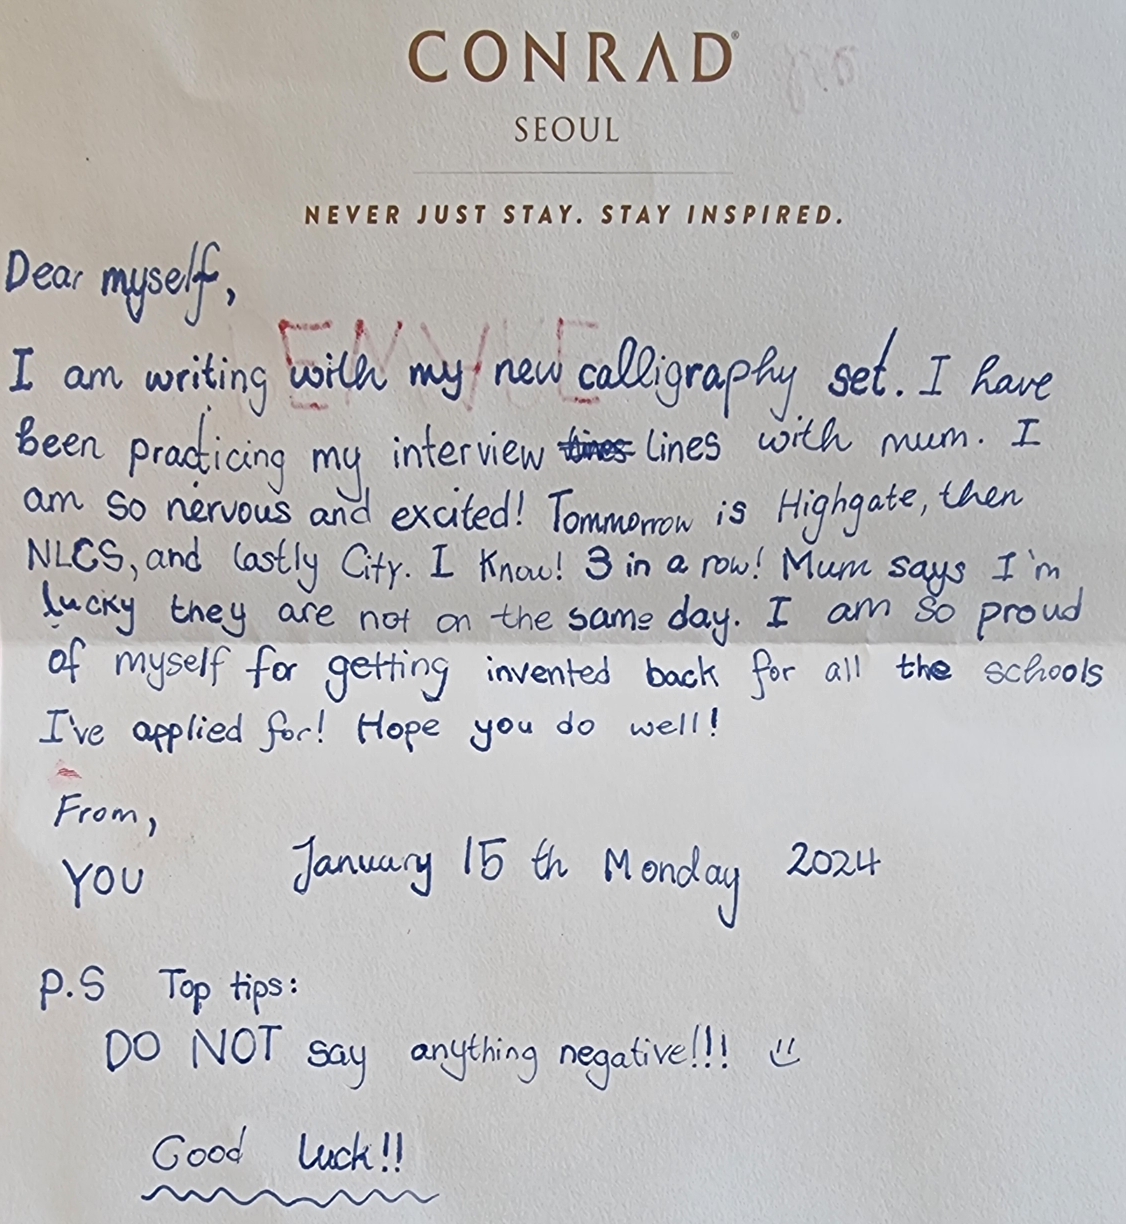 CONRAD®
SEOUL
NEVER JUST STAY. STAY INSPIRED.
Dear myself,
I am writing with my new calligraphy set. I have
been practicing my interview lines with mum. I
am so nervous and excited! Tommorrow is Highgate, then
NLCS, and lastly City. I Know! 3 in a row! Mum says I'm
lucky they are not on the same day. I am so proud
of myself for getting invented back for all the schools
I've applied for! Hope you do well!
From,
YOU
January 15 th Monday 2024
P.S Top tips:
DO NOT say anything negative!!!
Good luck!!